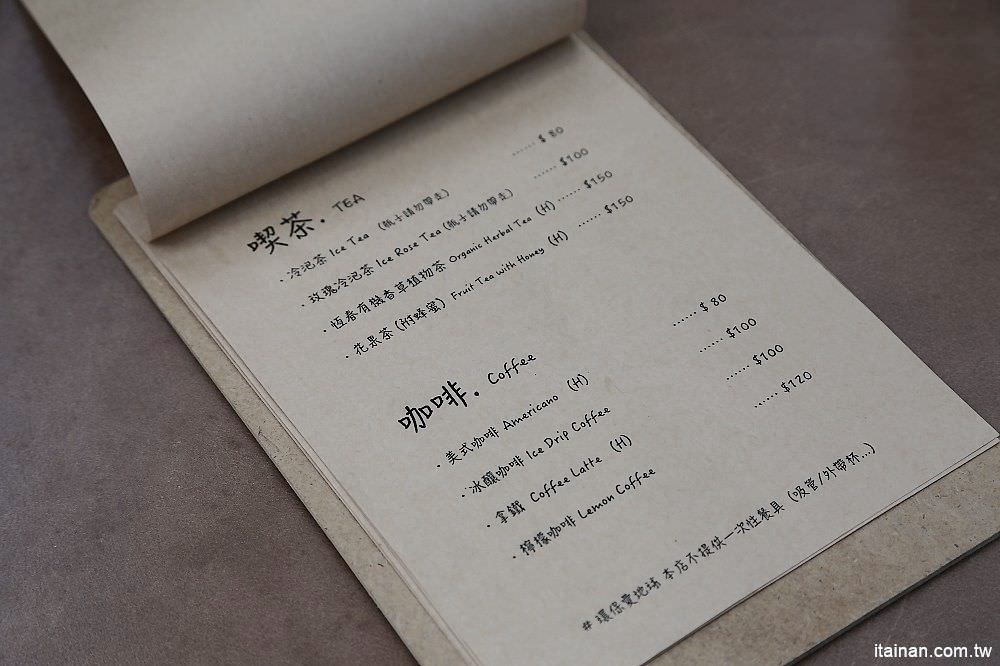 喫茶. TEA
· 冷泡茶 Ice Tea (瓶子請勿帶走) ...... $ 80
· 玫瑰冷泡茶 Ice Rose Tea (瓶子請勿帶走) ...... $100
· 恆春有機香草植物茶 Organic Herbal Tea (H) ...... $150
· 花果茶 (附蜂蜜) Fruit Tea with Honey (H) ...... $150
咖啡. Coffee
· 美式咖啡 Americano (H) ...... $ 80
· 冰釀咖啡 Ice Drip Coffee ...... $100
· 拿鐵 Coffee Latte (H) ...... $100
· 檸檬咖啡 Lemon Coffee ...... $120
# 環保愛地球 本店不提供一次性餐具 (吸管/外帶杯...)
itainan.com.tw